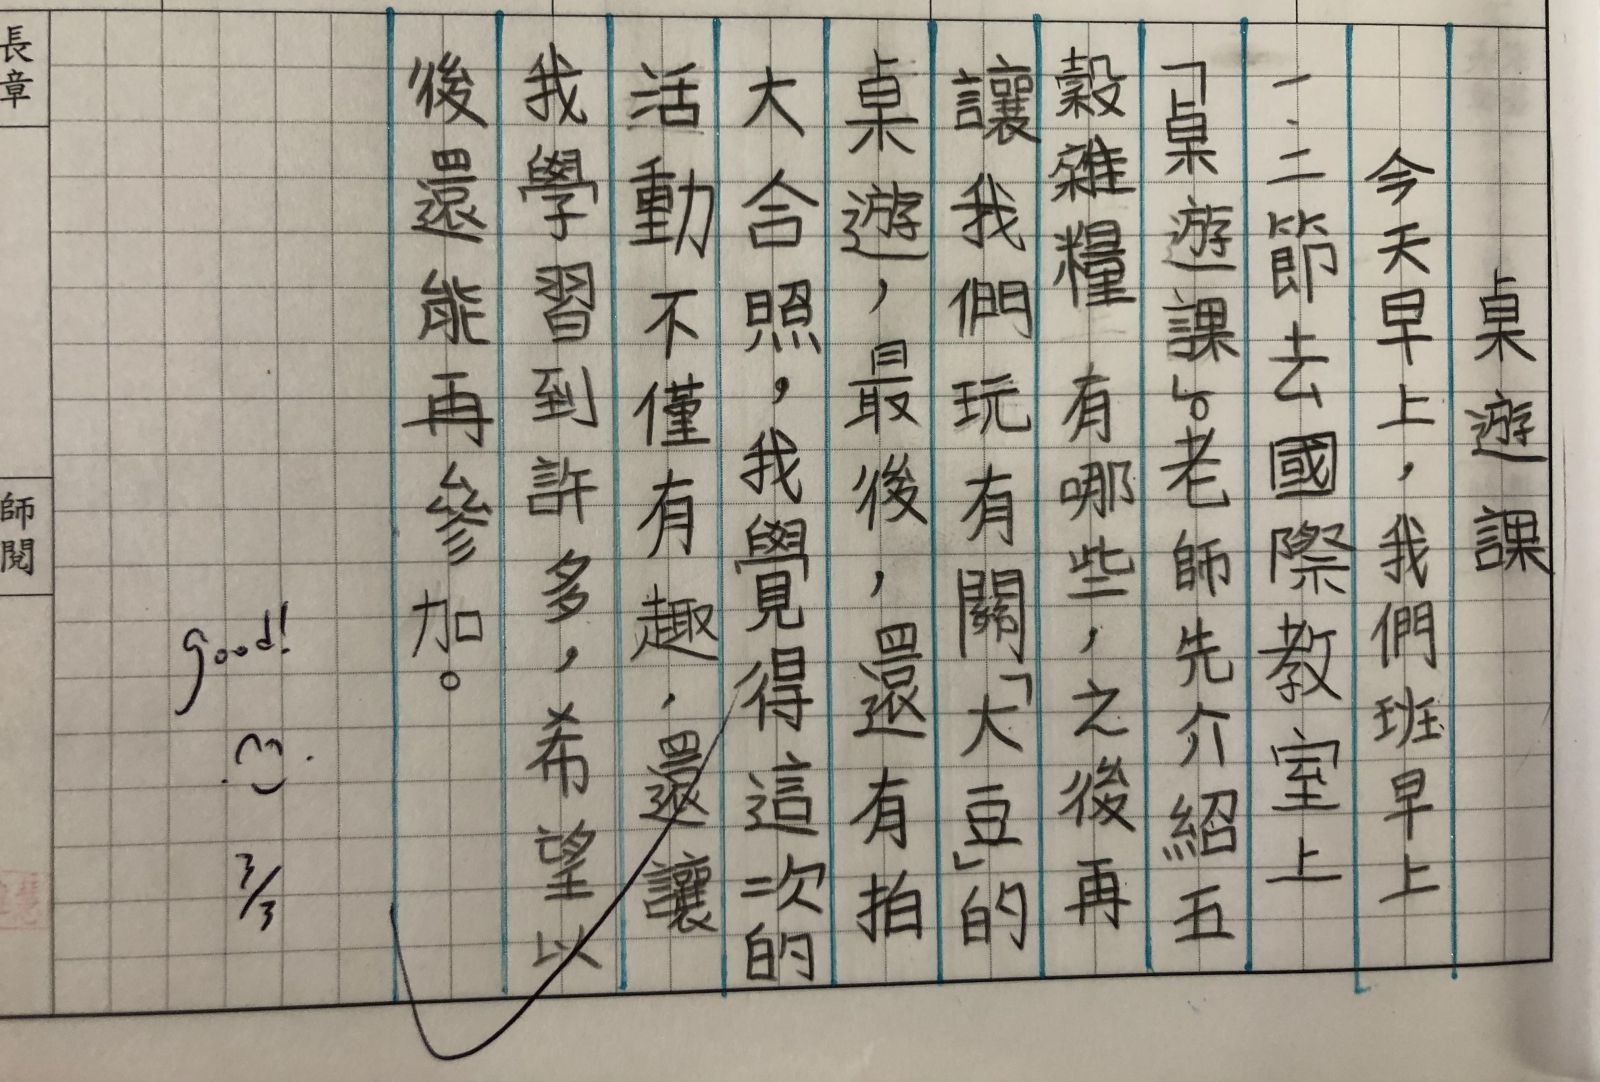 桌遊課
今天早上，我們班早上
一、二節去國際教室上
「桌遊課」。老師先介紹五
穀雜糧有哪些，之後再
讓我們玩有關「大豆」的
桌遊，最後，還有拍
大合照，我覺得這次的
活動不僅有趣，還讓
我學習到許多，希望以
後還能再參加。
good!
3/3
長章
師閱